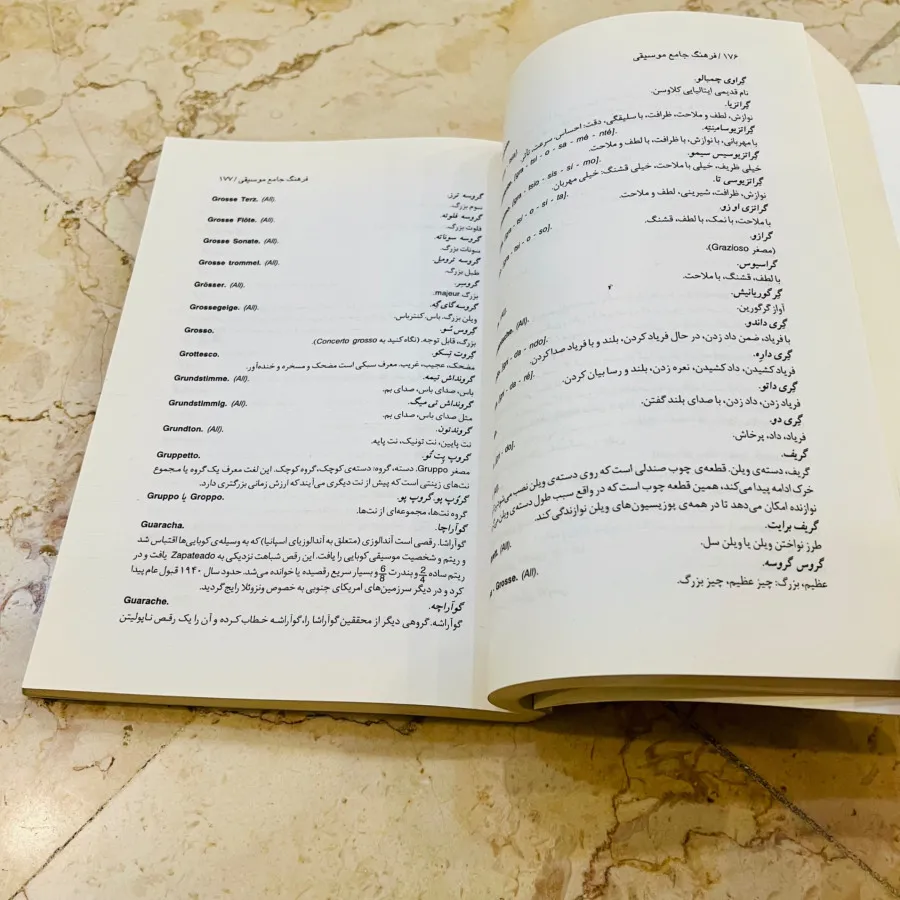 ۱۷۶ / فرهنگ جامع موسیقی
گراوی چمبالو.
نام قدیمی ایتالیایی کلاوسن.
گراتزیا.
نوازش، لطف و ملاحت، ظرافت، با سلیقگی، دقت: احساس، سرعت، تأثر.
گراتزیوسامینته. [gra - tsi - o - sa - mè - ntè].
با مهربانی، با نوازش، با ظرافت، با لطف و ملاحت.
گراتزیوسیس سیمو. [gra - tsio - sis - si - mo].
خیلی ظریف، خیلی با ملاحت، خیلی قشنگ، خیلی مهربان.
گراتزیوسی تا. [gra - tsi - o - si - ta].
نوازش، ظرافت، شیرینی، لطف و ملاحت.
گراتزی او زو. [gra - tsi - o - so].
با ملاحت، با نمک، با لطف، قشنگ.
گرازو.
(مصغر Grazioso).
گراسیوس.
با لطف، قشنگ، با ملاحت.
گرگوریانیش. (All).
آواز گرگورین.
گری داندو. [gri - da - ndo].
با فریاد، ضمن داد زدن، در حال فریاد کردن، بلند و با فریاد صدا کردن.
گری داره. [gri - da - ré].
فریاد کشیدن، داد کشیدن، نعره زدن، بلند و رسا بیان کردن.
گری داتو.
فریاد زدن، داد زدن، با صدای بلند گفتن.
گری دو. [gri - do].
فریاد، داد، پرخاش.
گریف.
گریف، دسته‌ی ویلن. قطعه‌ی چوب صندلی است که روی دسته‌ی ویلن نصب می‌شود
خرک ادامه پیدا می‌کند، همین قطعه چوب است که در واقع سبب طول دسته‌ی ویلن
نوازنده امکان می‌دهد تا در همه‌ی پوزیسیون‌های ویلن نوازندگی کند.
گریف برایت. (All).
طرز نواختن ویلن یا ویلن سل.
گروس گروسه. Grosse. (All).
عظیم، بزرگ: چیز عظیم، چیز بزرگ.
فرهنگ جامع موسیقی / ۱۷۷
گروسه ترز. Grosse Terz. (All).
سوم بزرگ.
گروسه فلوته. Grosse Flöte. (All).
فلوت بزرگ.
گروسه سوناته. Grosse Sonate. (All).
سونات بزرگ.
گروسه ترومبل. Grosse trommel. (All).
طبل بزرگ.
گروسیر. Grösser. (All).
بزرگ majeur.
گروسه گای گه. Grossegeige. (All).
ویلن بزرگ. باس، کنترباس.
گروس سو. Grosso.
بزرگ، قابل توجه. (نگاه کنید به Concerto grosso).
گروت تسکو. Grottesco.
مضحک، عجیب، غریب. معرف سبکی است مضحک و مسخره و خنده‌آور.
گرونداش تیمه. Grundstimme. (All).
باس، صدای باس، صدای بم.
گرونداش تی میگ. Grundstimmig. (All).
مثل صدای باس، صدای بم.
گروند تون. Grundton. (All).
نت پایین، نت تونیک، نت پایه.
گروپ پت تو. Gruppetto.
مصغر Gruppo. دسته، گروه: دسته‌ی کوچک، گروه کوچک. این لغت معرف یک گروه یا مجموع
نت‌های زینتی است که پیش از نت دیگری می‌آیند که ارزش زمانی بزرگتری دارد.
گروپ پو. گروپ پو. Groppo. یا Gruppo
گروه نت‌ها، مجموعه‌ای از نت‌ها.
گوآراچا. Guaracha.
گوآراشا. رقصی است آندالوزی (متعلق به آندالوزیای اسپانیا) که به وسیله‌ی کوبایی‌ها اقتباس شد
و ریتم و شخصیت موسیقی کوبایی را یافت. این رقص شباهت نزدیکی به Zapateado یافت و در
ریتم ساده 2/4 و بندرت 6/8 و بسیار سریع رقصیده یا خوانده می‌شد. حدود سال ۱۹۴۰ قبول عام پیدا
کرد و در دیگر سرزمین‌های امریکای جنوبی به خصوص ونزوئلا رایج گردید.
گوآراچه. Guarache.
گوآراشه. گروهی دیگر از محققین گوآراشا را، گوآراشه خطاب کرده و آن را یک رقص ناپولیتن